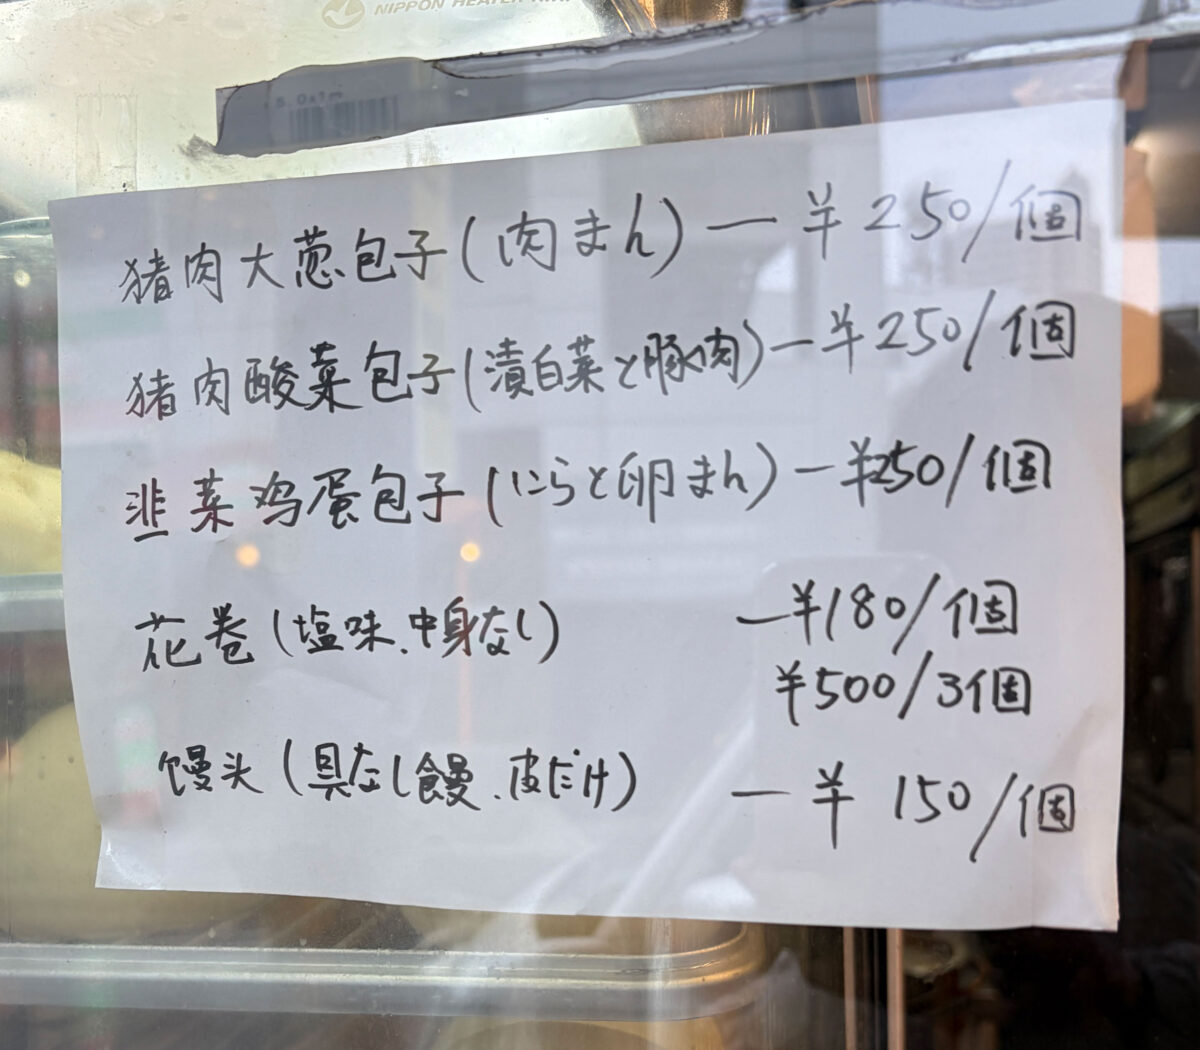 NIPPON HEATER
猪肉大葱包子(肉まん)—¥250/個
猪肉酸菜包子(漬白菜と豚肉)—¥250/個
韭菜鸡蛋包子(にらと卵まん)—¥250/個
花巻(塩味、中身なし)—¥180/個
¥500/3個
馒头(具なし饅、皮だけ)—¥150/個